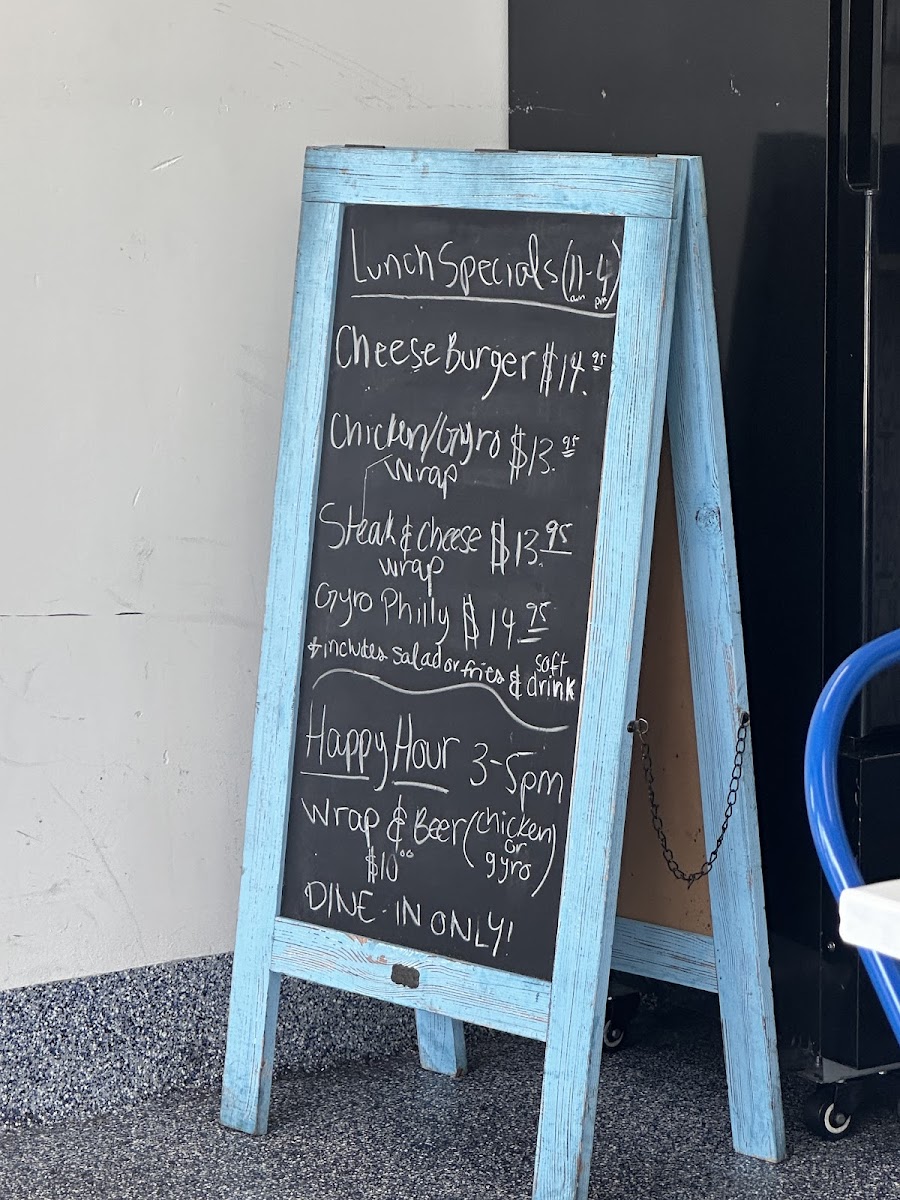 Lunch Specials (11am-4pm)
Cheese Burger $14.95
Chicken/Gyro $13.95
wrap
Steak & cheese $13.95
wrap
Gyro Philly $14.95
* includes salad or fries & soft drink
Happy Hour 3-5pm
Wrap & Beer (chicken or gyro)
$10.00
DINE-IN ONLY!